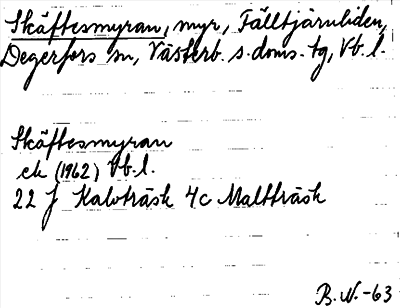 Skäftesmyran, myr, Fälltjärnliden,
Degerfors sn, Västerb. s. doms. tg, Vb. l.
Skäftesmyran
ek (1962) Vb. l.
22 J Kalvträsk 4c Maltträsk
B. N. -63